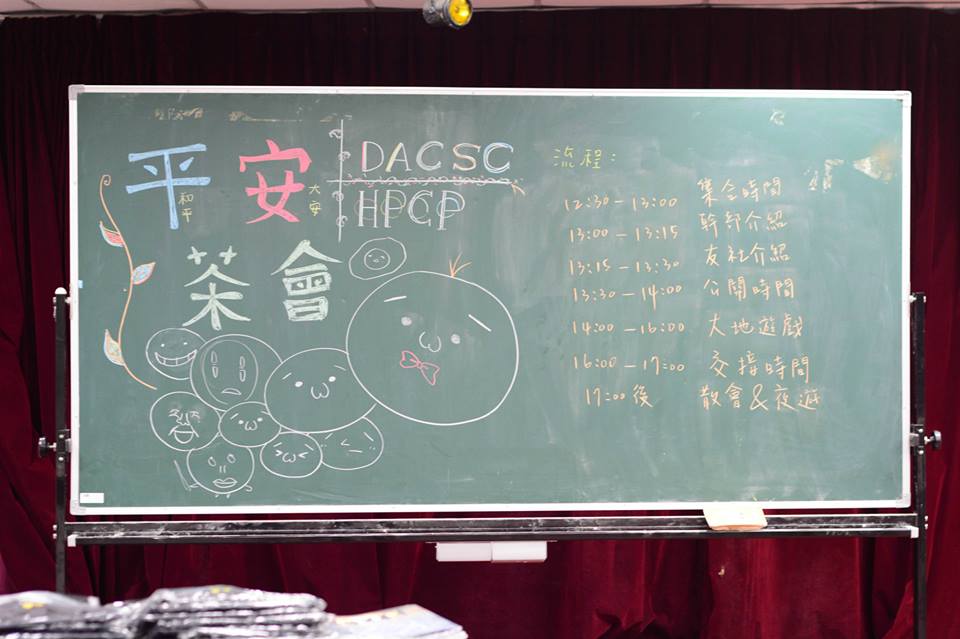 平安
和平
大安
茶會
DACSC
HPCP
流程：
12:30－13:00 集合時間
13:00－13:15 幹部介紹
13:15－13:30 友社介紹
13:30－14:00 公開時間
14:00－16:00 大地遊戲
16:00－17:00 交接時間
17:00後 散會&夜遊